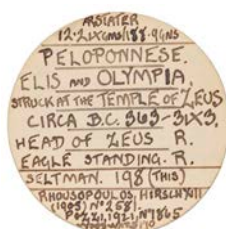 AR STATER
12.21 GMS/188.9 GNS
PELOPONNESE.
ELIS AND OLYMPIA.
STRUCK AT THE TEMPLE OF ZEUS
CIRCA B.C. 363-313.
HEAD OF ZEUS R.
EAGLE STANDING. R.
SELTMAN. 198 (THIS)
RHOUSOPOULOS, HIRSCH XIII
(1905) Nº 2681.
POZZI, 1921, Nº 1865